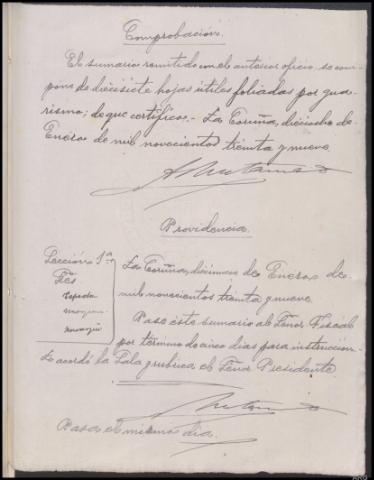 Comprobación.
El sumario remitido con el anterior oficio se com-
pone de diecisiete hojas útiles foliadas por gua-
rismo; de que certifico.- La Coruña, dieciocho de
Enero de mil novecientos treinta y nueve
Providencia.
Sección 1ª
La Coruña, diecinueve de Enero de
mil novecientos treinta y nueve.
Pase este sumario al Señor Fiscal
por término de cinco días para instrucción.
Lo acordó la Sala y rubrica el Señor Presidente
Pasa el mismo día.